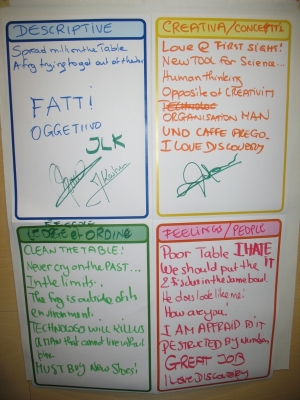 DESCRIPTIVE
Spread milk on the Table
A frog trying to get out of the
FATTI!
OGGETIIVO
JLK
CREATIVA/CONCETTI
Love @ FIRST SIGHT!
NEW TOOL for Science...
Human thinking
Opposite of CREATIVITY
ORGANISATION MAN
UND CAFFE PREGO.
I LOVE DISCOVERY
REGOLE
LEGGE et ORDINE
CLEAN THE TABLE!
Never cry on the PAST...
In the limits.
The frog is outside of its
environment.
TECHNOLOGY WILL KILL US
A man that cannot live without
MUST BUY New Shoes!
FEELINGS/PEOPLE
Poor Table I HATE IT
We should put the
2 fishes in the same bowl.
He does look like me!
How are you!
I AM AFRAID TO IT
DESTRUCTED BY numbers
GREAT JOB
I LOVE DISCOVERY